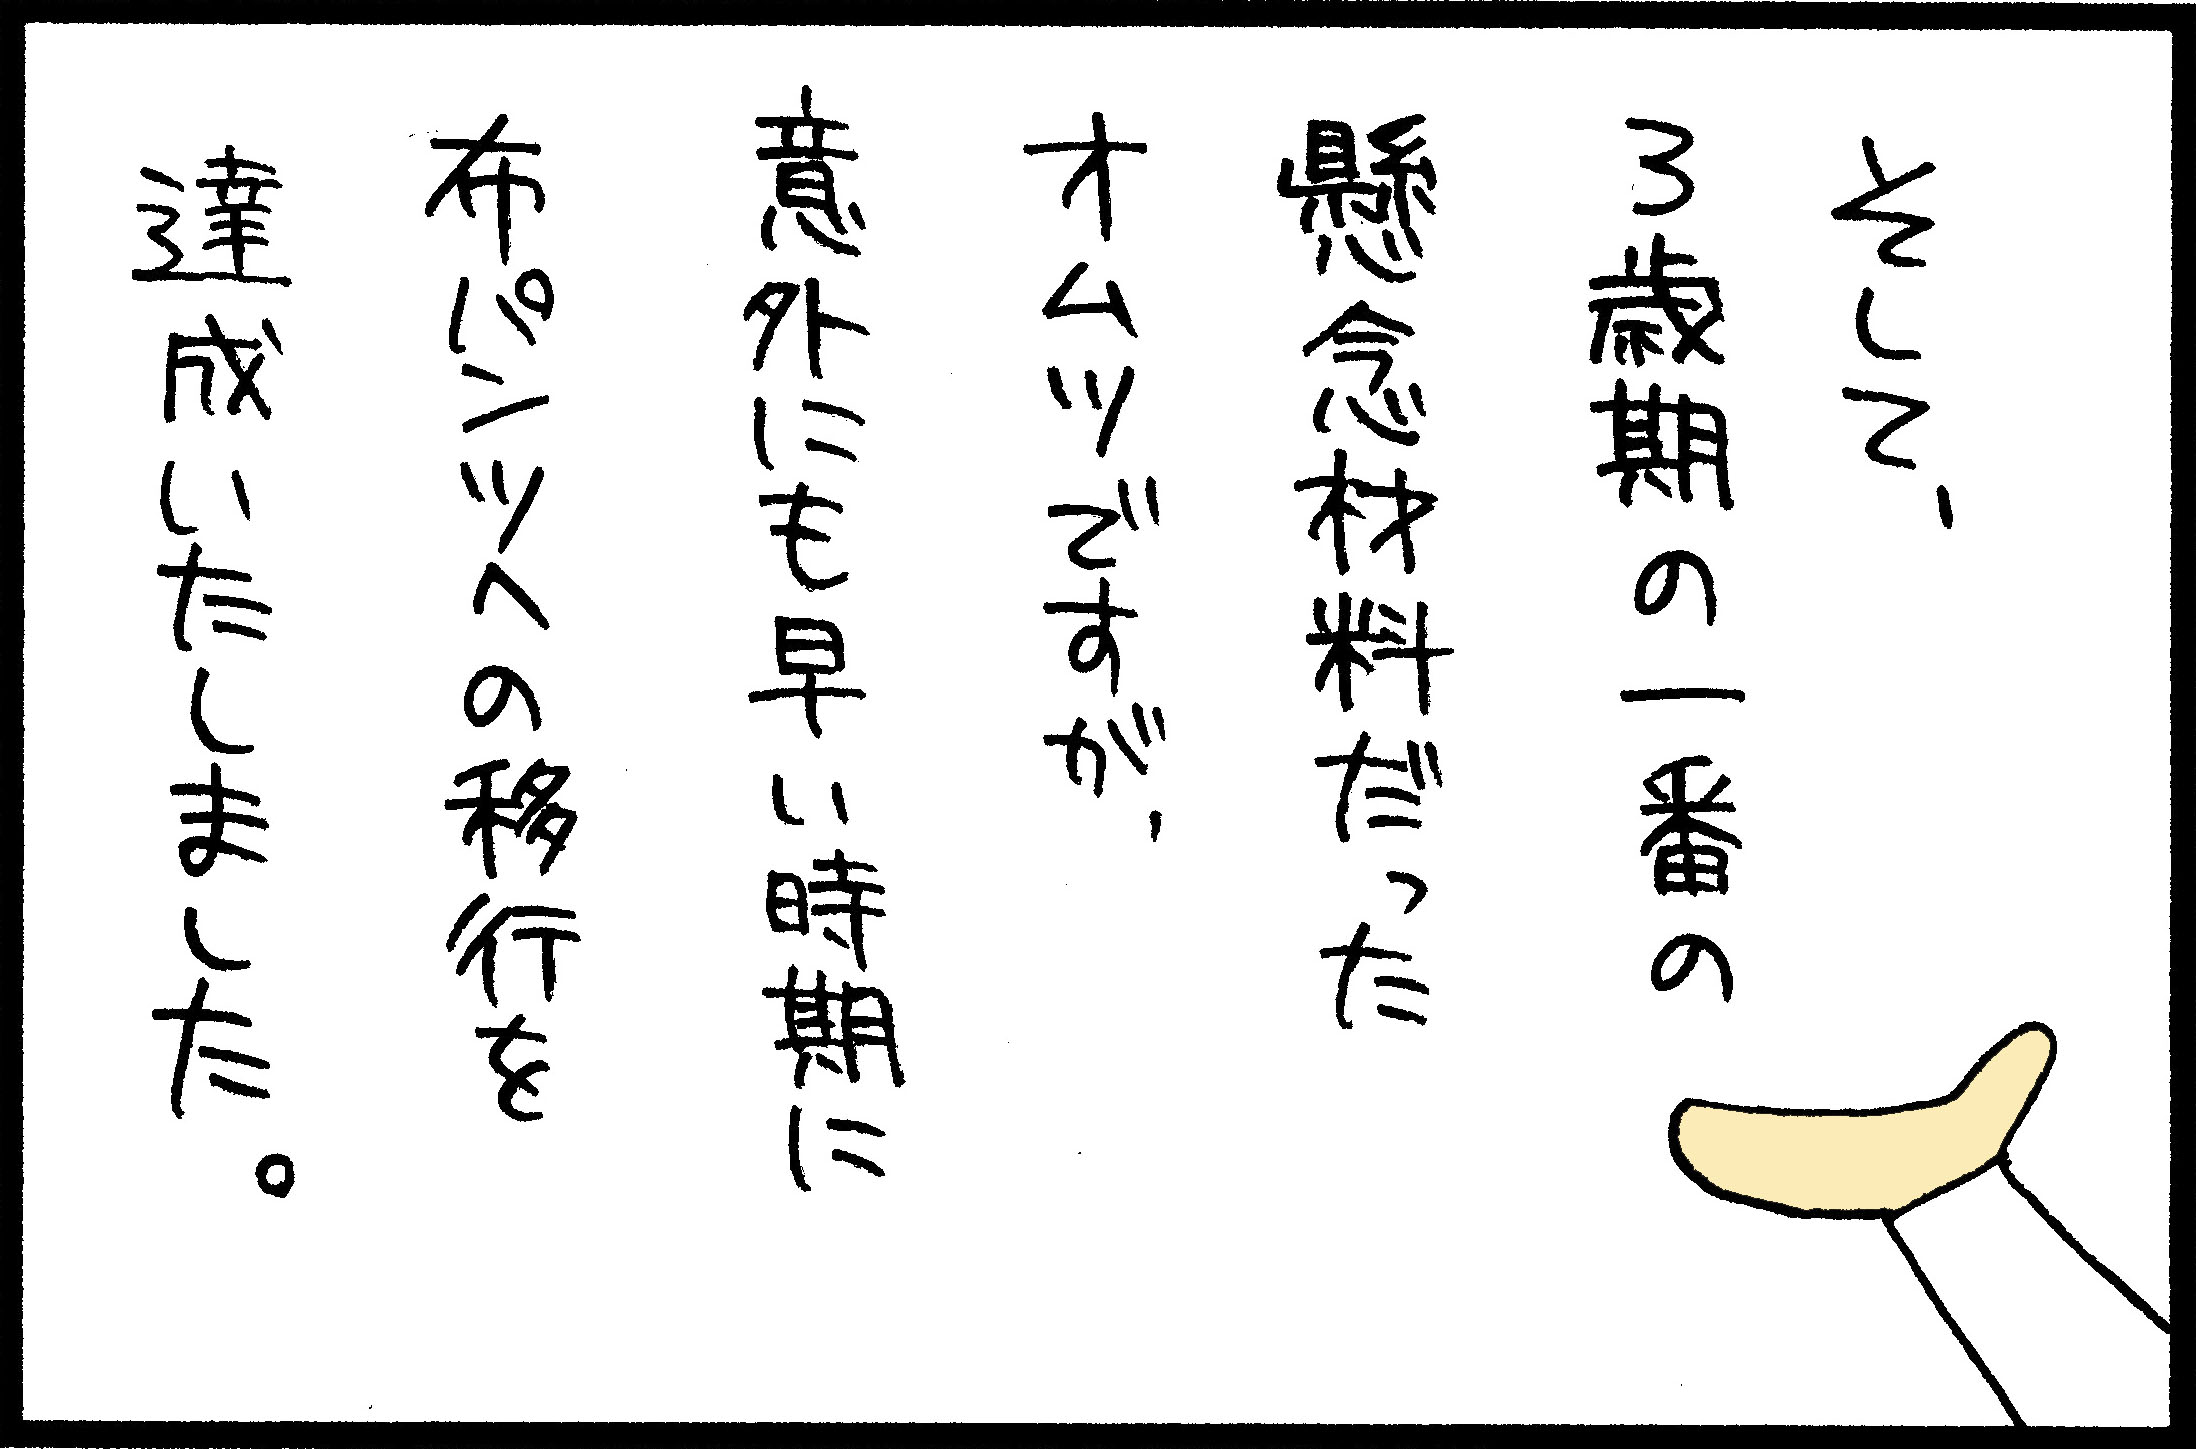 そして、
3歳期の一番の
懸念材料だった
オムツですが、
意外にも早い時期に
布パンツへの移行を
達成いたしました。